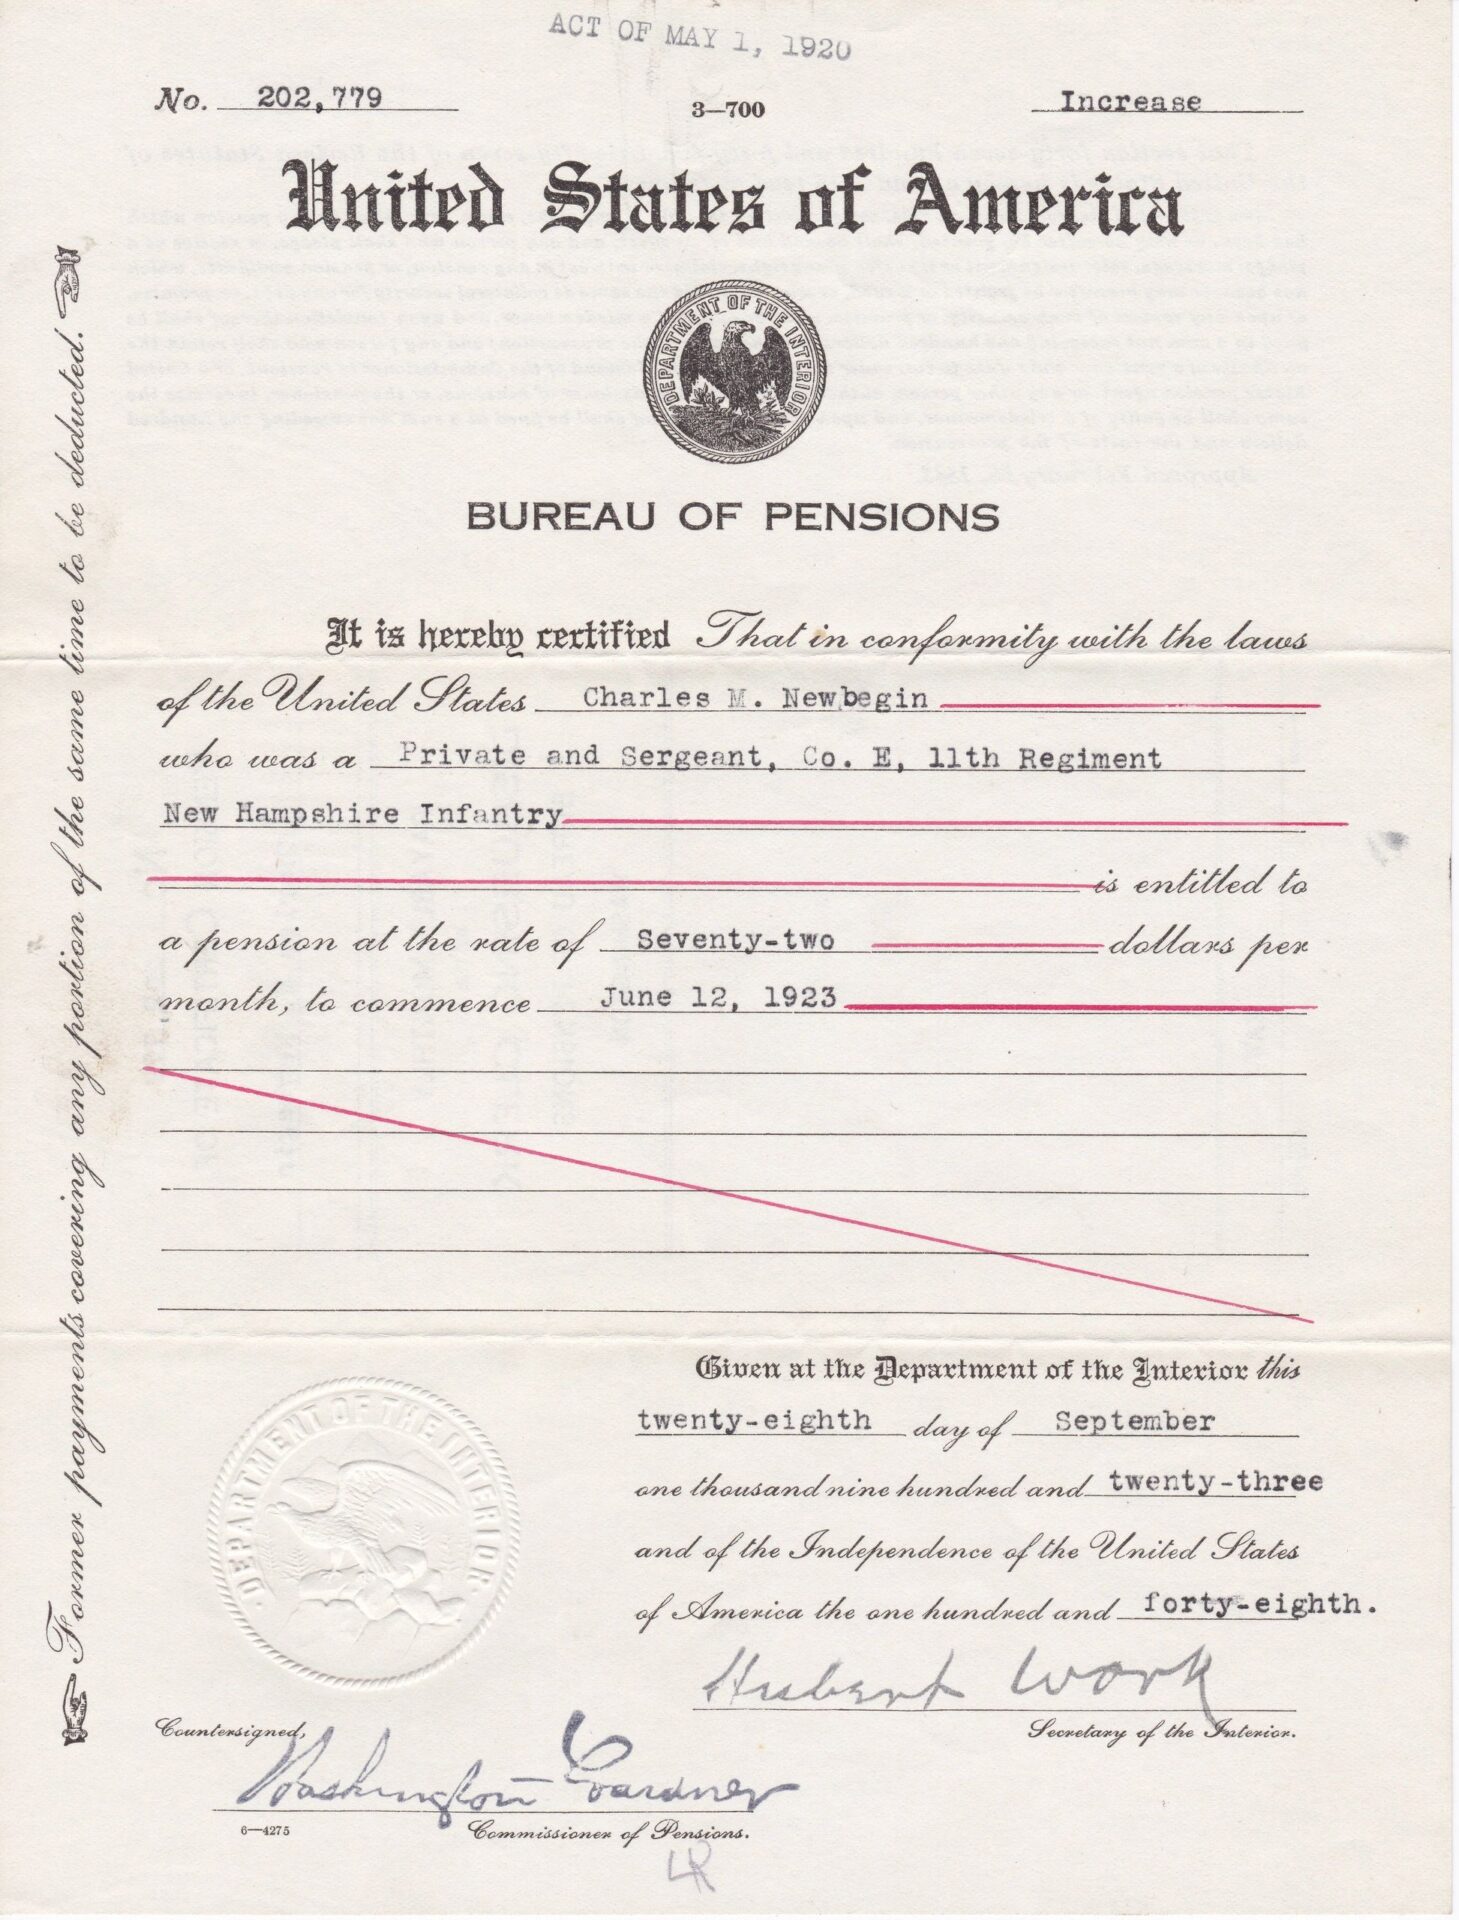 ACT OF MAY 1, 1920
No. 202,779
3—700
Increase
United States of America
DEPARTMENT OF THE INTERIOR
BUREAU OF PENSIONS
It is hereby certified That in conformity with the laws
of the United States Charles M. Newbegin
who was a Private and Sergeant, Co. E, 11th Regiment
New Hampshire Infantry
is entitled to
a pension at the rate of Seventy-two dollars per
month, to commence June 12, 1923
Former payments covering any portion of the same time to be deducted.
Given at the Department of the Interior this
twenty-eighth day of September
one thousand nine hundred and twenty-three
and of the Independence of the United States
of America the one hundred and forty-eighth.
DEPARTMENT OF THE INTERIOR
Hubert Work
Secretary of the Interior.
Countersigned,
Washington Gardner
6—4275
Commissioner of Pensions.